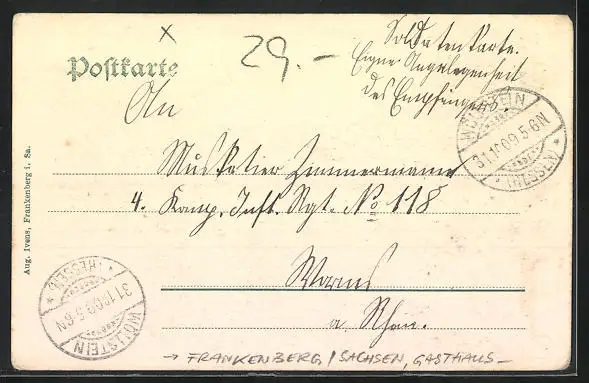 29.-
Soldatenkarte.
Eigne Angelegenheit
des Empfängers!
Postkarte
An
WÖLLSTEIN
31.10.09.5-6N
(HESSEN)
Musketier Zimmermann
4. Komp. Inft. Rgt. No 118
Worms
a. Rhein.
Aug. Ivens, Frankenberg i. Sa.
WÖLLSTEIN
31.10.09.5-6N
(HESSEN)
→ FRANKENBERG / SACHSEN, GASTHAUS -